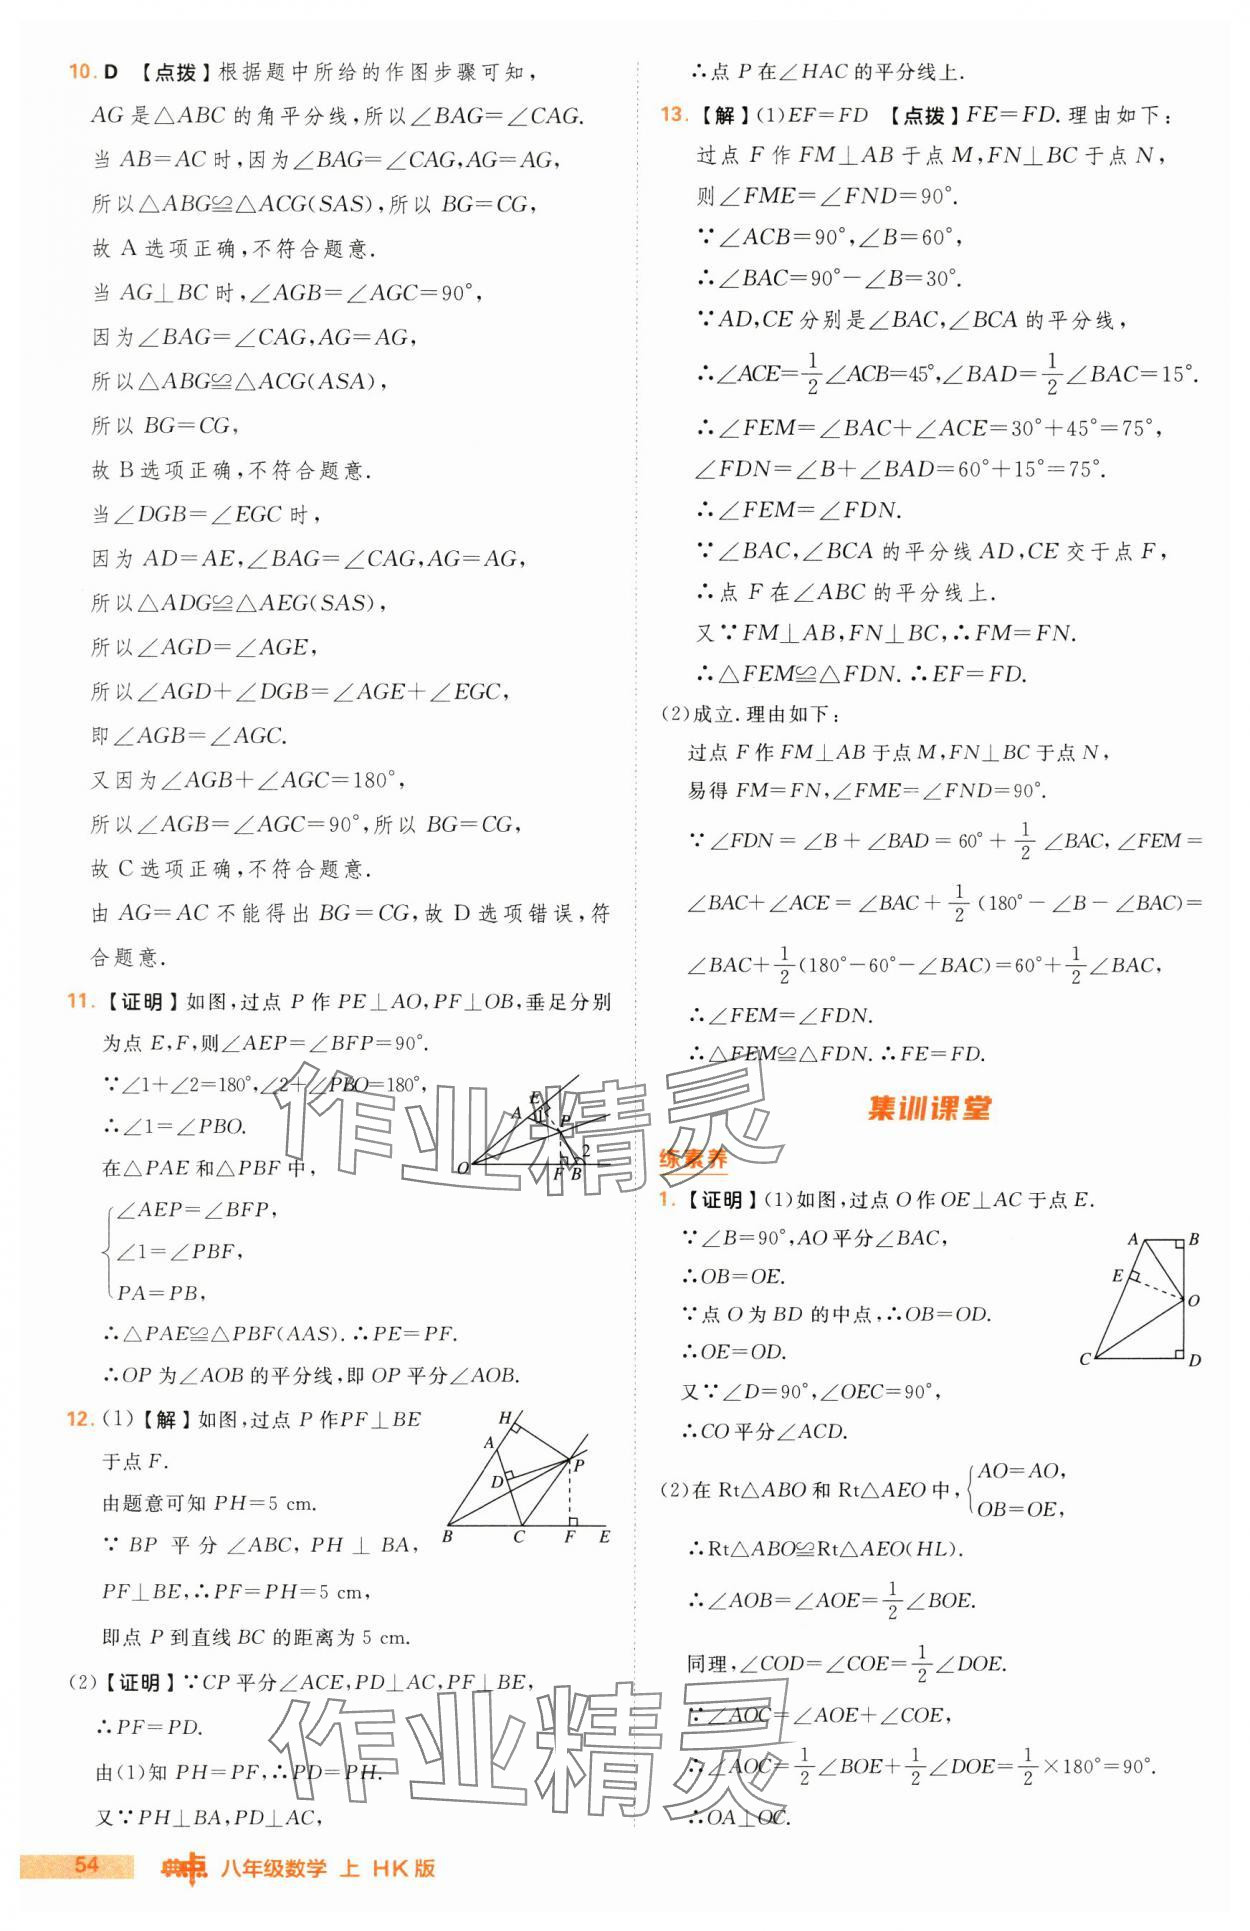 10. D 【点拨】根据题中所给的作图步骤可知,
AG是△ABC的角平分线,所以∠BAG=∠CAG.
当AB=AC时,因为∠BAG=∠CAG,AG=AG,
所以△ABG≌△ACG(SAS),所以BG=CG,
故A选项正确,不符合题意.
当AG⊥BC时,∠AGB=∠AGC=90°,
因为∠BAG=∠CAG,AG=AG,
所以△ABG≌△ACG(ASA),
所以BG=CG,
故B选项正确,不符合题意.
当∠DGB=∠EGC时,
因为AD=AE,∠BAG=∠CAG,AG=AG,
所以△ADG≌△AEG(SAS),
所以∠AGD=∠AGE,
所以∠AGD+∠DGB=∠AGE+∠EGC,
即∠AGB=∠AGC.
又因为∠AGB+∠AGC=180°,
所以∠AGB=∠AGC=90°,所以BG=CG,
故C选项正确,不符合题意.
由AG=AC不能得出BG=CG,故D选项错误,符
合题意.
11. 【证明】如图,过点P作PE⊥AO,PF⊥OB,垂足分别
为点E,F,则∠AEP=∠BFP=90°.
∵∠1+∠2=180°,∠2+∠PBO=180°,
∴∠1=∠PBO.
在△PAE和△PBF中,
∠AEP=∠BFP,
∠1=∠PBF,
PA=PB,
∴△PAE≌△PBF(AAS).∴PE=PF.
∴OP为∠AOB的平分线,即OP平分∠AOB.
E A 1 P 2 O F B
12. (1)【解】如图,过点P作PF⊥BE
于点F.
由题意可知PH=5 cm.
∵BP平分∠ABC,PH⊥BA,
PF⊥BE,∴PF=PH=5 cm,
即点P到直线BC的距离为5 cm.
H A D P B C F E
(2)【证明】∵CP平分∠ACE,PD⊥AC,PF⊥BE,
∴PF=PD.
由(1)知PH=PF,∴PD=PH.
又∵PH⊥BA,PD⊥AC,
54 典中点 八年级数学 上 HK版
∴点P在∠HAC的平分线上.
13. 【解】(1)EF=FD 【点拨】FE=FD.理由如下:
过点F作FM⊥AB于点M,FN⊥BC于点N,
则∠FME=∠FND=90°.
∵∠ACB=90°,∠B=60°,
∴∠BAC=90°-∠B=30°.
∵AD,CE分别是∠BAC,∠BCA的平分线,
∴∠ACE=1/2∠ACB=45°,∠BAD=1/2∠BAC=15°.
∴∠FEM=∠BAC+∠ACE=30°+45°=75°,
∠FDN=∠B+∠BAD=60°+15°=75°.
∴∠FEM=∠FDN.
∵∠BAC,∠BCA的平分线AD,CE交于点F,
∴点F在∠ABC的平分线上.
又∵FM⊥AB,FN⊥BC,∴FM=FN.
∴△FEM≌△FDN.∴EF=FD.
(2)成立.理由如下:
过点F作FM⊥AB于点M,FN⊥BC于点N,
易得FM=FN,∠FME=∠FND=90°.
∵∠FDN=∠B+∠BAD=60°+1/2∠BAC,∠FEM=
∠BAC+∠ACE=∠BAC+1/2(180°-∠B-∠BAC)=
∠BAC+1/2(180°-60°-∠BAC)=60°+1/2∠BAC,
∴∠FEM=∠FDN.
∴△FEM≌△FDN.∴FE=FD.
集训课堂
练素养
1. 【证明】(1)如图,过点O作OE⊥AC于点E.
∵∠B=90°,AO平分∠BAC,
∴OB=OE.
∵点O为BD的中点,∴OB=OD.
∴OE=OD.
又∵∠D=90°,∠OEC=90°,
∴CO平分∠ACD.
A B E O C D
(2)在Rt△ABO和Rt△AEO中,
AO=AO,
OB=OE,
∴Rt△ABO≌Rt△AEO(HL).
∴∠AOB=∠AOE=1/2∠BOE.
同理,∠COD=∠COE=1/2∠DOE.
∵∠AOC=∠AOE+∠COE,
∴∠AOC=1/2∠BOE+1/2∠DOE=1/2×180°=90°.
∴OA⊥OC.
作业精灵
作业精灵